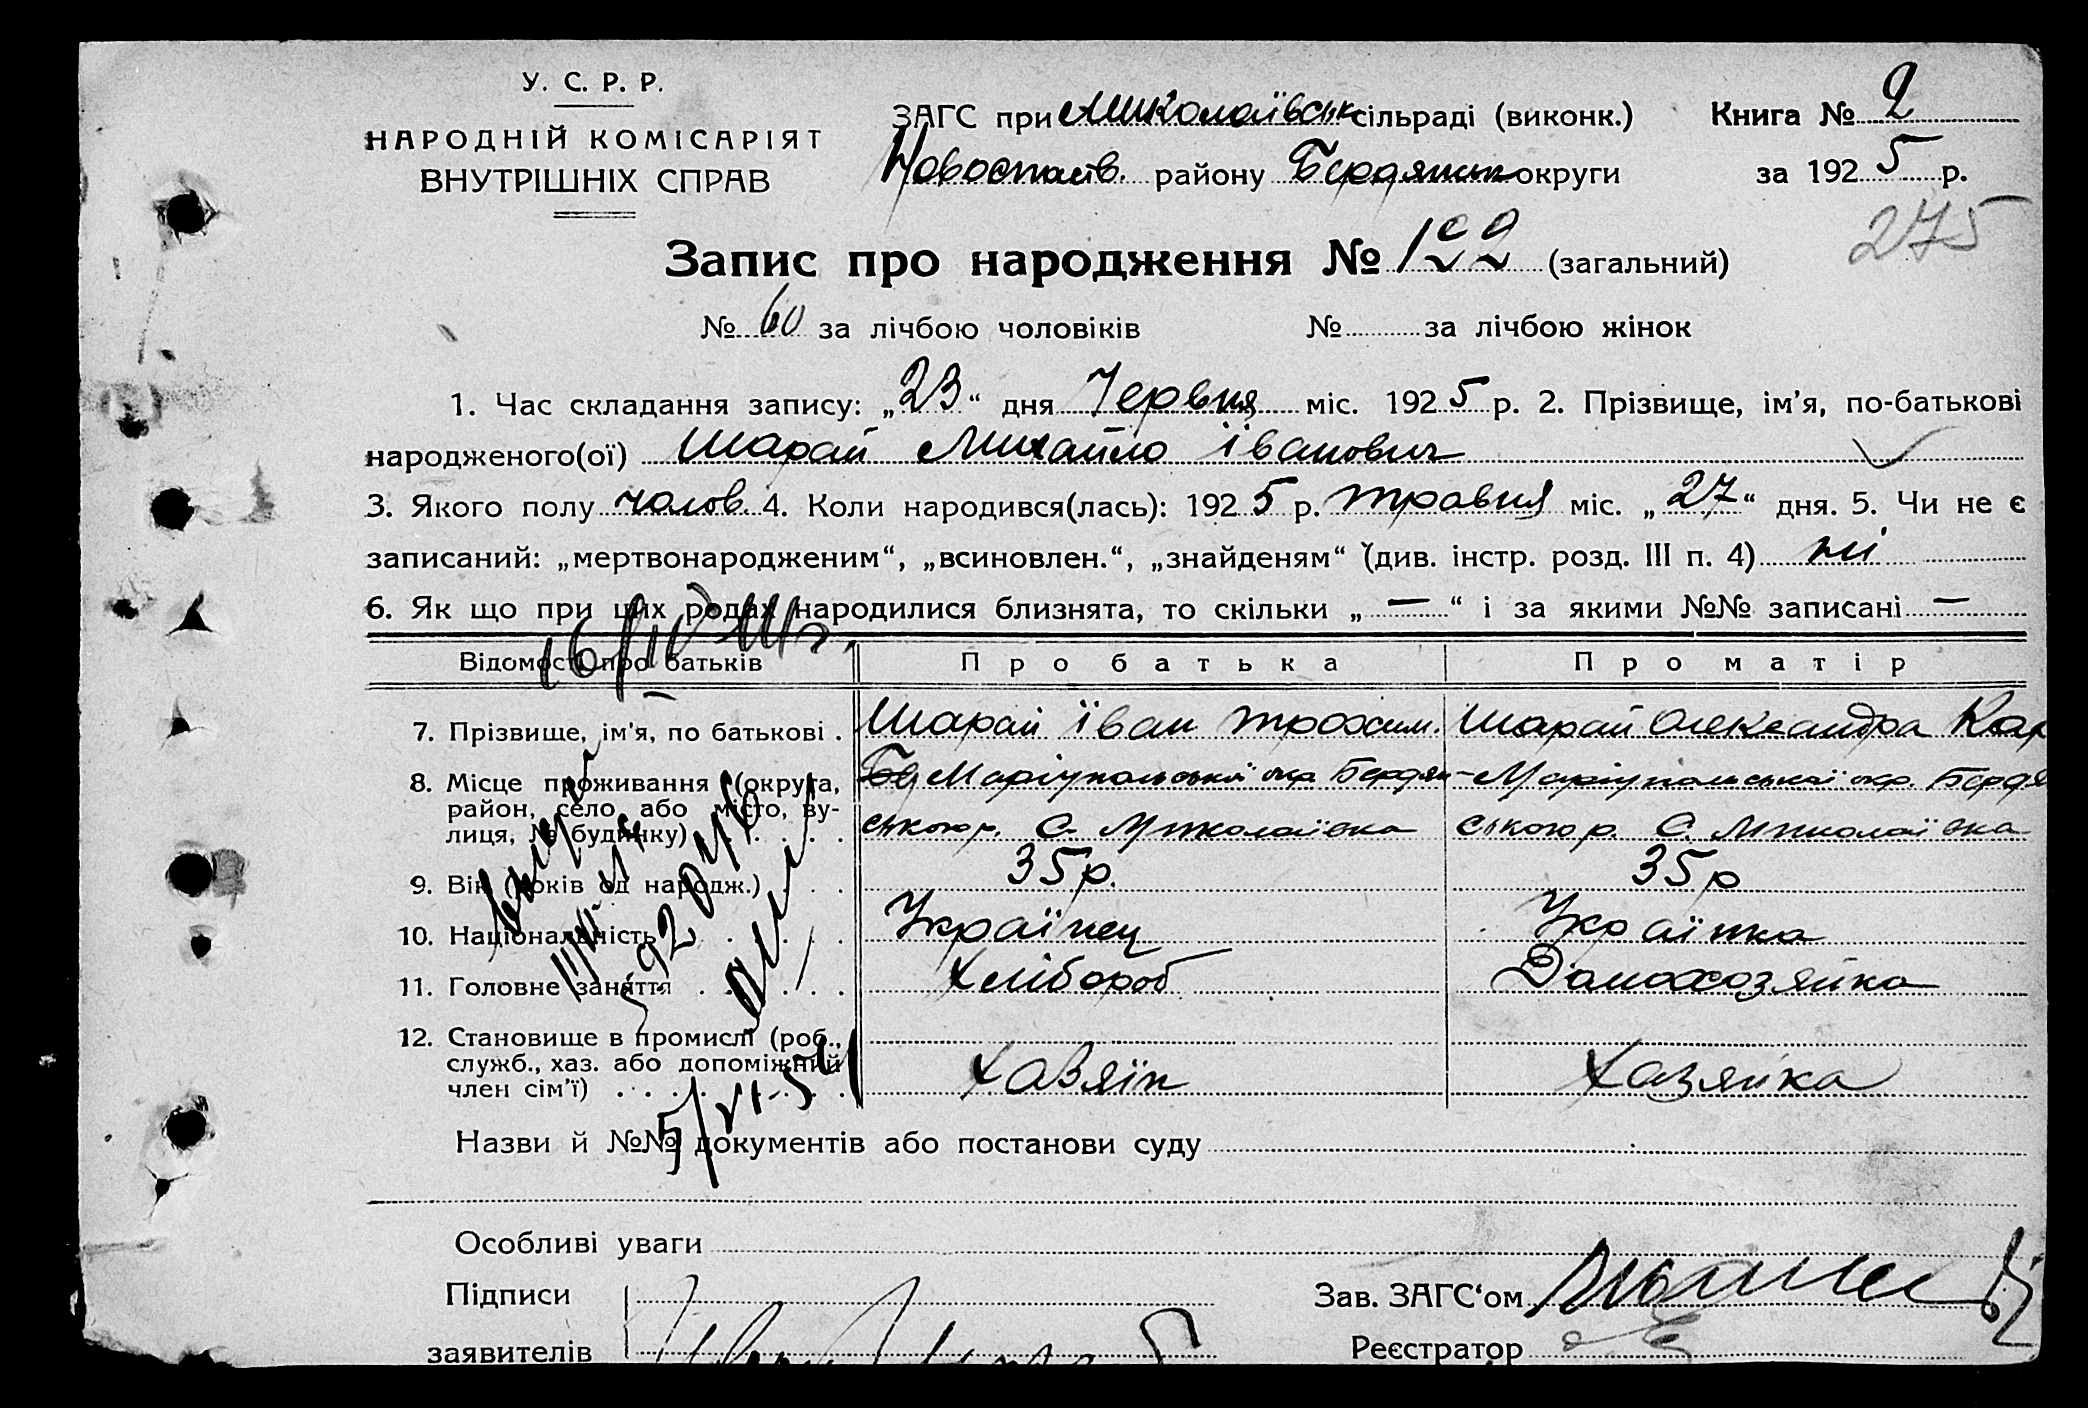 У. С. Р. Р.
НАРОДНІЙ КОМІСАРІЯТ
ВНУТРІШНІХ СПРАВ
ЗАГС при Миколаївськ сільраді (виконк.)
Новоспасів. району Бердянск округи
Книга № 2
за 1925 р.
275
Запис про народження № 122 (загальний)
№ 60 за лічбою чоловіків № за лічбою жінок
1. Час складання запису: „23“ дня Червня міс. 1925 р. 2. Прізвище, ім'я, по-батькові
народженого(ої) Шарай Михайло Іванович
3. Якого полу чолов. 4. Коли народився(лась): 1925 р. травня міс. „27“ дня. 5. Чи не є
записаний: „мертвонародженим“, „всиновлен.“, „знайденям“ (див. інстр. розд. III п. 4) ні
6. Як що при цих родах народилися близнята, то скільки „—“ і за якими №№ записані —
Відомості про батьків Про батька Про матір
7. Прізвище, ім'я, по батькові . Шарай Їван Трохим. Шарай Олександра Кар
8. Місце проживання (округа, Маріупольської окр Бердян- Маріупольської окр. Бердя
район, село або місто, ву-
лиця, № будинку) . . . ського р. С. Миколаївка ського р. С. Миколаївка
9. Вік (років од народж.) . . . 35 р. 35 р
10. Національність . . . . . Українец Українка
11. Головне заняття . . . . . Хлібороб Домохозяйка
12. Становище в промислі (роб.,
служб., хаз. або допоміжний
член сім'ї) . . . . . . . Хазяїн Хазяйка
5/VI-54
Назви й №№ документів або постанови суду
Особливі уваги
Підписи
заявителів
Зав. ЗАГС'ом
Реєстратор